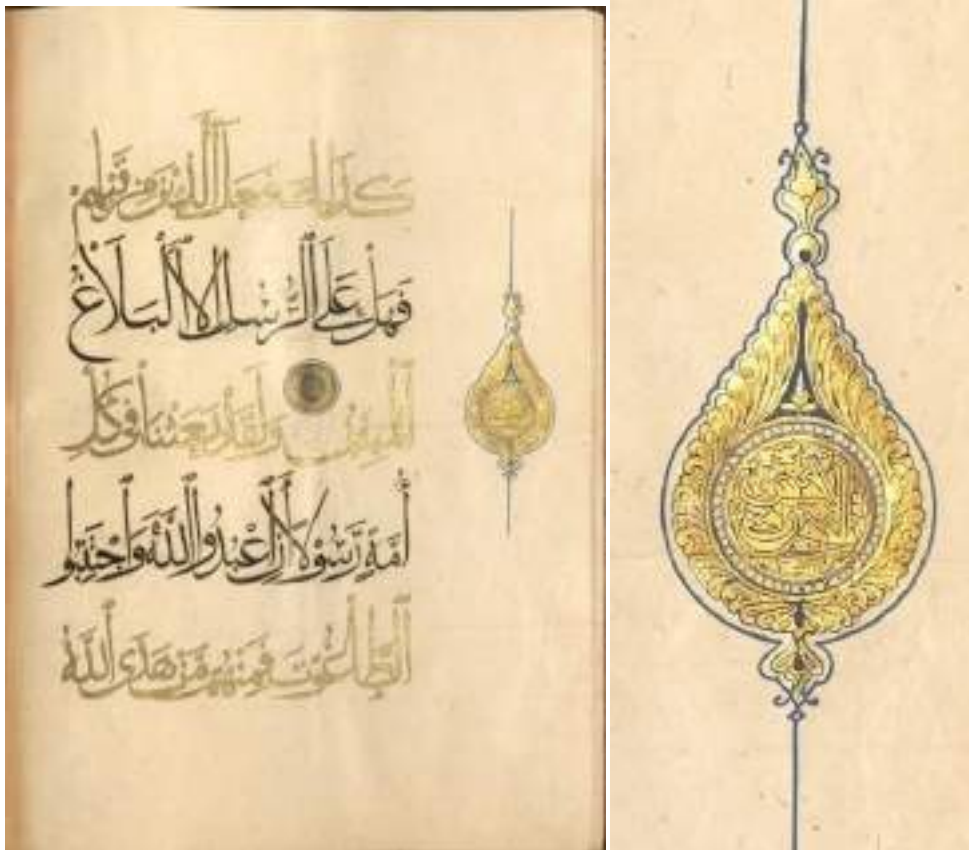 كَذَلِكَ فَعَلَ الَّذِينَ مِن قَبْلِهِمْ
فَهَلْ عَلَى الرُّسُلِ إِلَّا الْبَلَاغُ
الْمُبِينُ وَلَقَدْ بَعَثْنَا فِي كُلِّ
أُمَّةٍ رَّسُولًا أَنِ اعْبُدُوا اللَّهَ وَاجْتَنِبُوا
الطَّاغُوتَ فَمِنْهُم مَّنْ هَدَى اللَّهُ